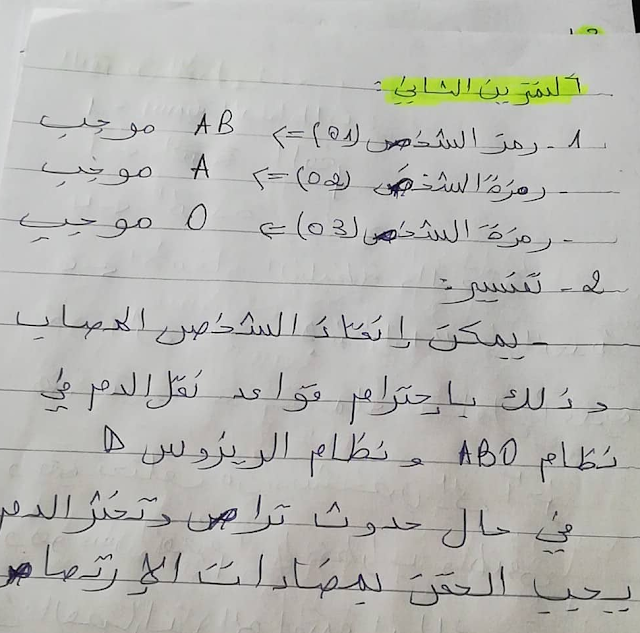 التمرين الثاني:
1- رمز الشخص (01) => AB موجب
- رمزة الشخص (02) => A موجب
- رمزة الشخص (03) => O موجب
2- تفسير:
- يمكن إنقاذ الشخص المصاب
وذلك بإحترام قواعد نقل الدم في
نظام ABO ونظام الريزوس D
في حال حدوث تراص وتخثر الدم
يجب الحقن بمضادات الإرتصاص